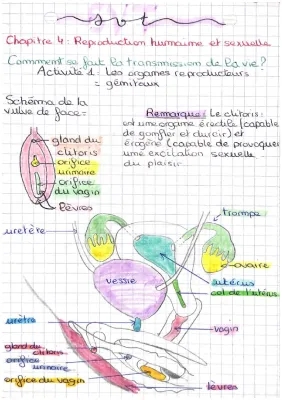 svt
Chapitre 4 : Reproduction humaine et sexuelle
Comment se fait la transmission de la vie ?
Activité 1 : Les organes reproducteurs
= génitaux
Schéma de la
vulve de face =
gland du
clitoris
orifice
urinaire
orifice
du vagin
lèvres
Remarque : Le clitoris :
est une organe érectile (capable
de gonfler et durcir) et
érogène (capable de provoquer
une excitation sexuelle
du plaisir.
trompe
uretère
ovaire
vessie
utérus
col de l'utérus
urètre
vagin
gland du
clitoris
orifice
urinaire
orifice du vagin
lèvres